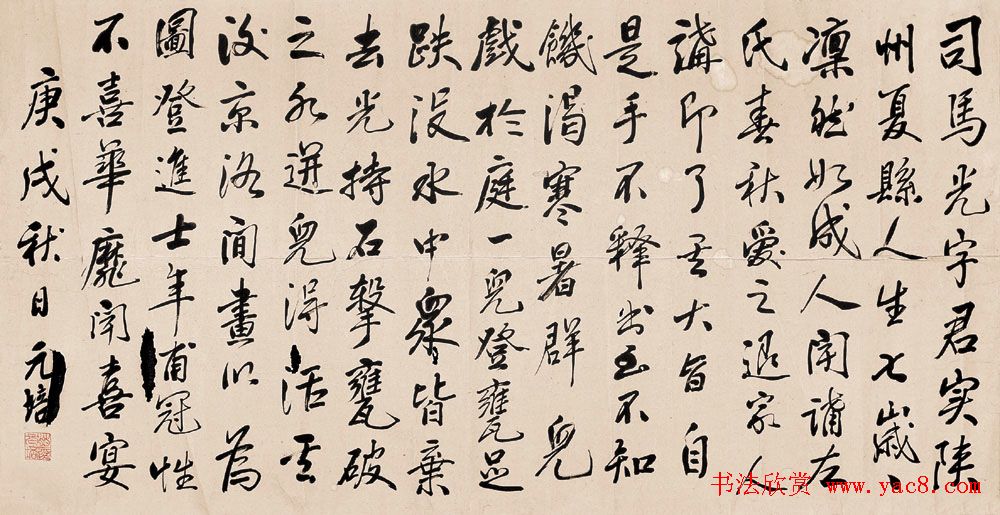 司馬光字君实陕
州夏縣人生七歲、
凛然如成人闻誦左
氏春秋愛之退家人
講即了其大旨自
是手不释书至不知
饑渴寒暑群 兒
戲於庭一兒登甕足
跌没水中眾皆棄
去光持石擊甕破
之水迸兒得活其
後京洛间畫以為
圖登進士年甫冠性
不喜華靡闻喜宴
庚戌秋日 元培
书法欣赏 www.yac8.com